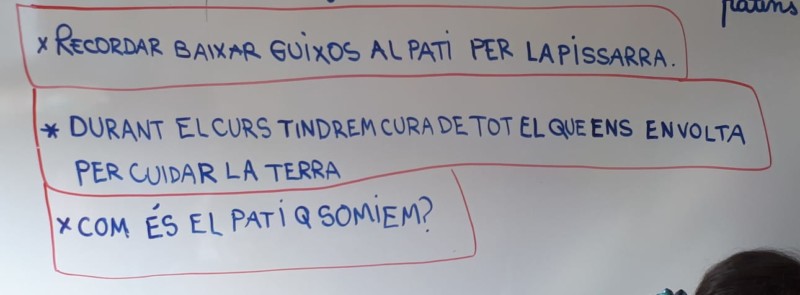 patins
x RECORDAR BAIXAR GUIXOS AL PATI PER LA PISSARRA.
* DURANT EL CURS TINDREM CURA DE TOT EL QUE ENS ENVOLTA
PER CUIDAR LA TERRA
x COM ÉS EL PATI Q SOMIEM?